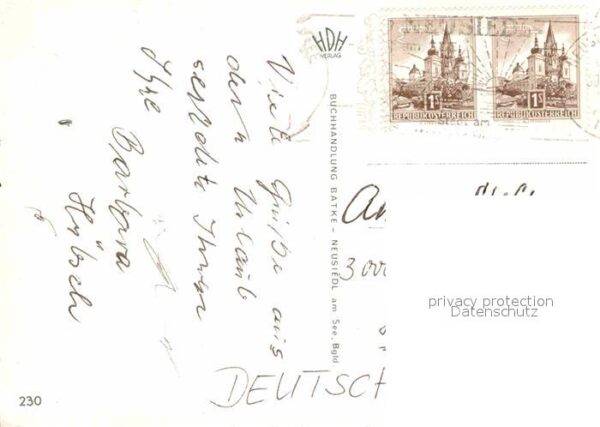 Viele Grüße aus
dem Urlaub
sendete Ihnen
Ihre Barbara
Hübsch
HDH
VERLAG
BUCHHANDLUNG BATKE - NEUSIEDL am See, Bgld
NEUSIEDL
1S
REPUBLIK ÖSTERREICH
1S
REPUBLIK ÖSTERREICH
An
3000
DEUTSCH
privacy protection
Datenschutz
230